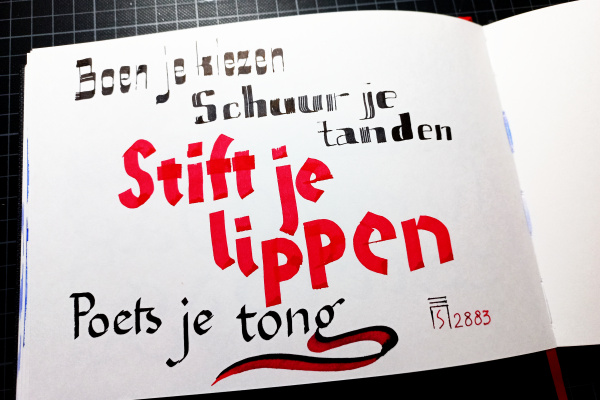 Boen je kiezen
Schuur je
tanden
Stift je
lippen
Poets je tong
2883